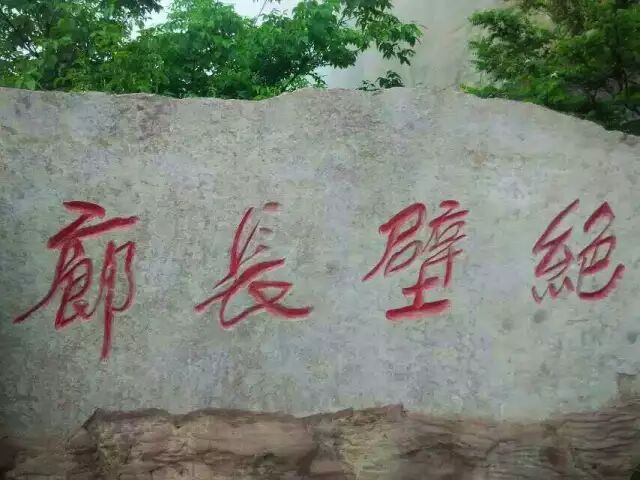 絕壁長廊